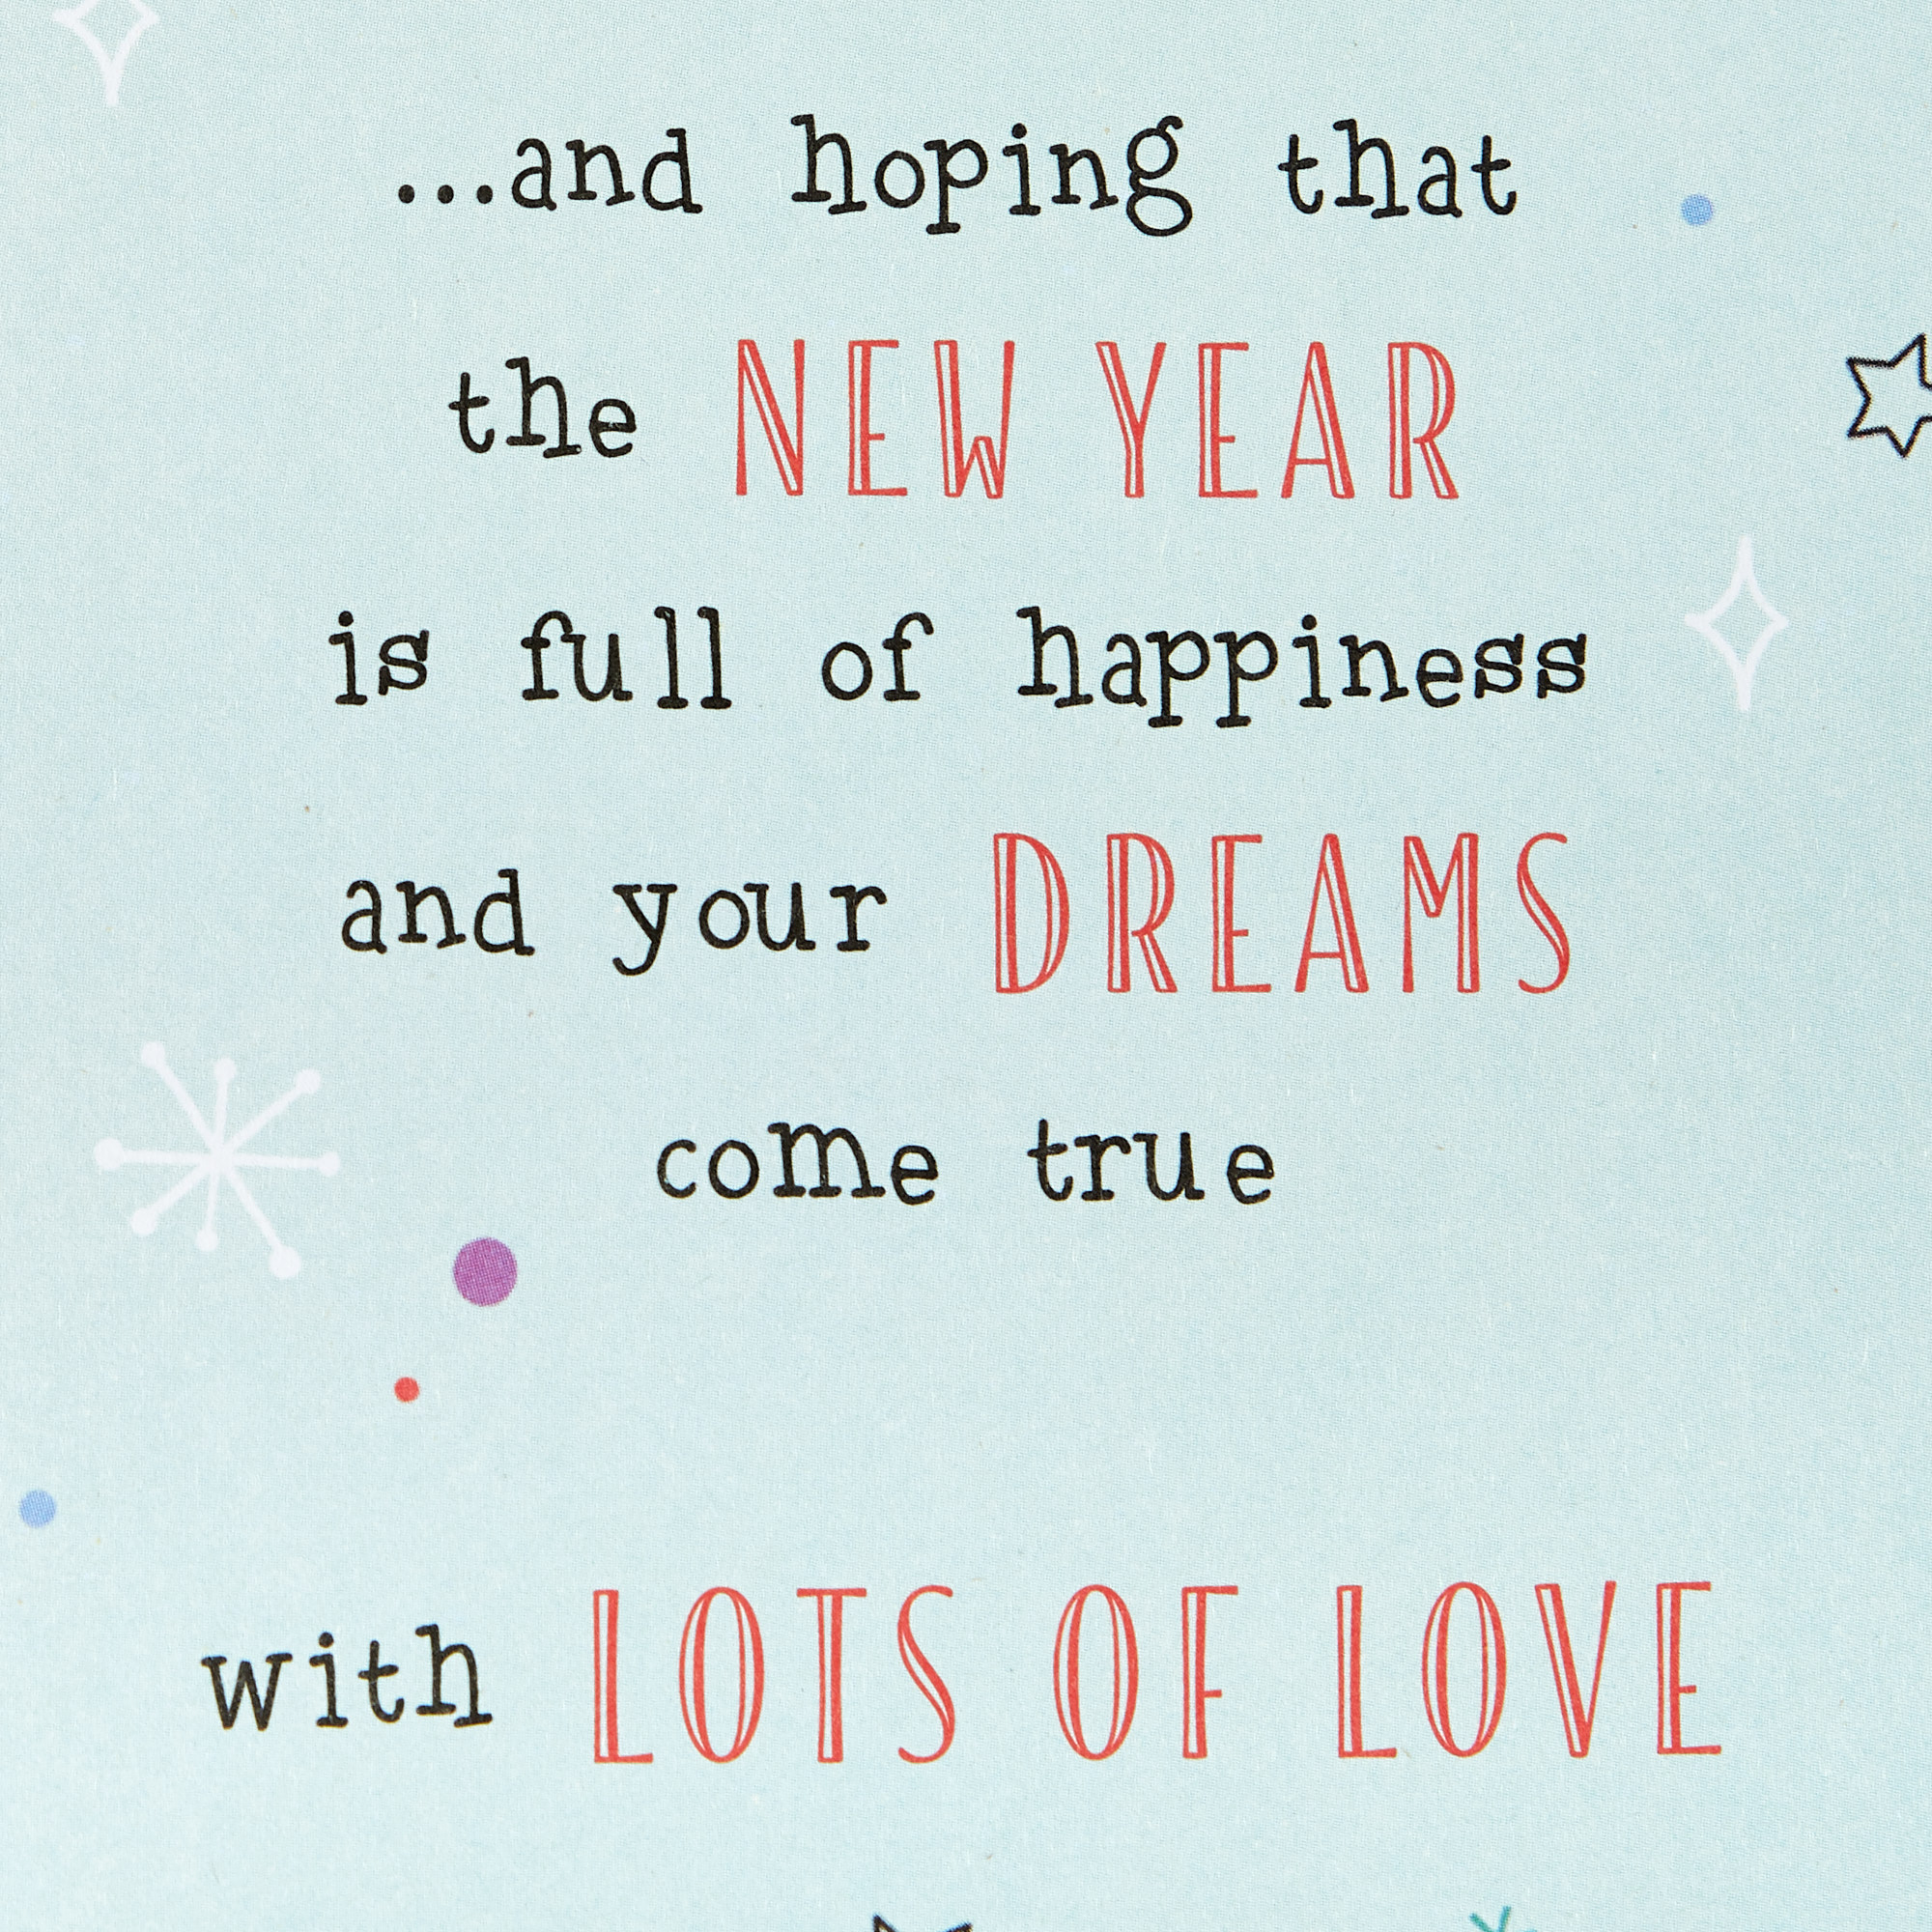 ...and hoping that
the NEW YEAR
is full of happiness
and your DREAMS
come true
with LOTS OF LOVE